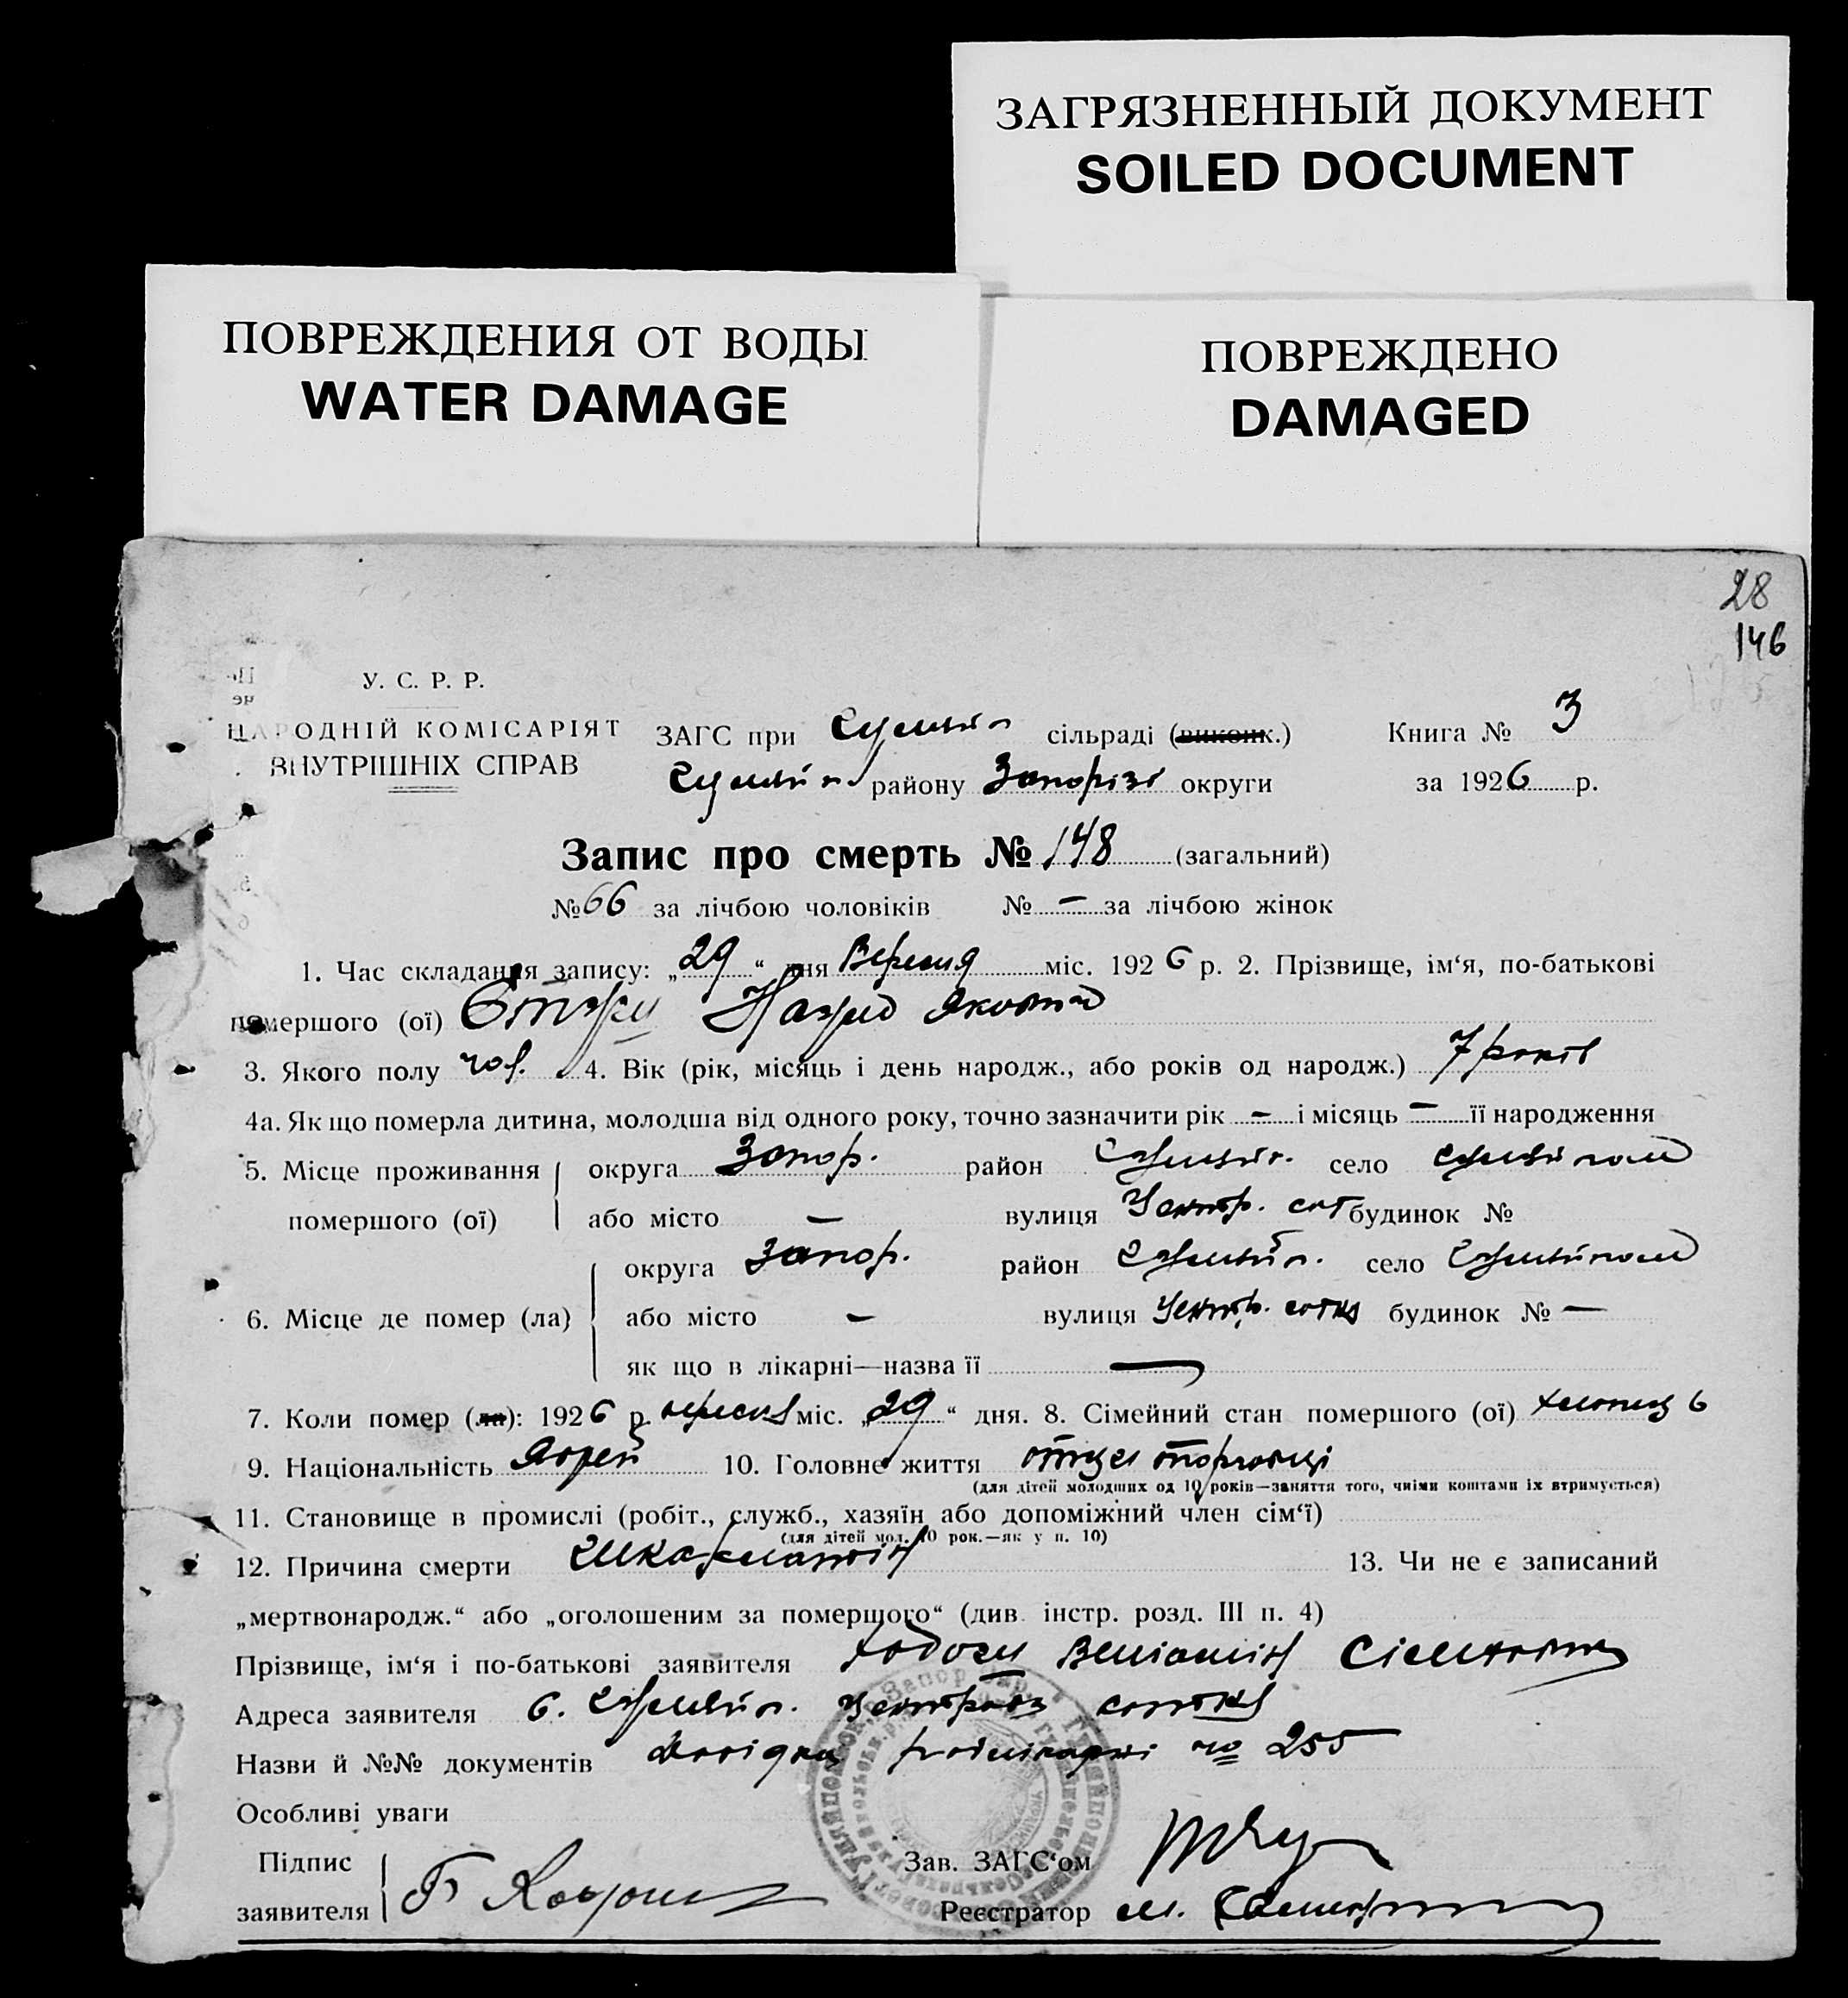 ЗАГРЯЗНЕННЫЙ ДОКУМЕНТ
SOILED DOCUMENT
ПОВРЕЖДЕНИЯ ОТ ВОДЫ
WATER DAMAGE
ПОВРЕЖДЕНО
DAMAGED
28
146
У. С. Р. Р.
НАРОДНІЙ КОМІСАРІЯТ
ВНУТРІШНІХ СПРАВ
ЗАГС при сільраді (виконк.)
району Запорізь округи
Книга № 3
за 1926 р.
Запис про смерть № 148 (загальний)
№ 66 за лічбою чоловіків № — за лічбою жінок
1. Час складання запису: „29“ дня Вересня міс. 1926 р. 2. Прізвище, ім‘я, по-батькові
помершого (ої)
3. Якого полу чол. 4. Вік (рік, місяць і день народж., або років од народж.) 7 років
4а. Як що померла дитина, молодша від одного року, точно зазначити рік — і місяць — її народження
5. Місце проживання помершого (ої) округа Запор. район село
або місто — вулиця Центр. сот будинок №
6. Місце де помер (ла) округа Запор. район село
або місто — вулиця Центр. сотня будинок № —
як що в лікарні—назва її —
7. Коли помер (ла): 1926 р. вересня міс. „29“ дня. 8. Сімейний стан помершого (ої) хлопець 6
9. Національність Яврей 10. Головне життя отець торговці
(для дітей молодших од 10 років—заняття того, чиїми коштами їх втримується)
11. Становище в промислі (робіт., служб., хазяїн або допоміжний член сім‘ї)
(для дітей мол. 10 рок.—як у п. 10)
12. Причина смерти Шкарлатін 13. Чи не є записаний
„мертвонародж.“ або „оголошеним за помершого“ (див. інстр. розд. III п. 4)
Прізвище, ім‘я і по-батькові заявителя Веніамін
Адреса заявителя с. сотня
Назви й №№ документів Довідка № 255
Особливі уваги
Підпис заявителя
Зав. ЗАГС‘ом
Реєстратор